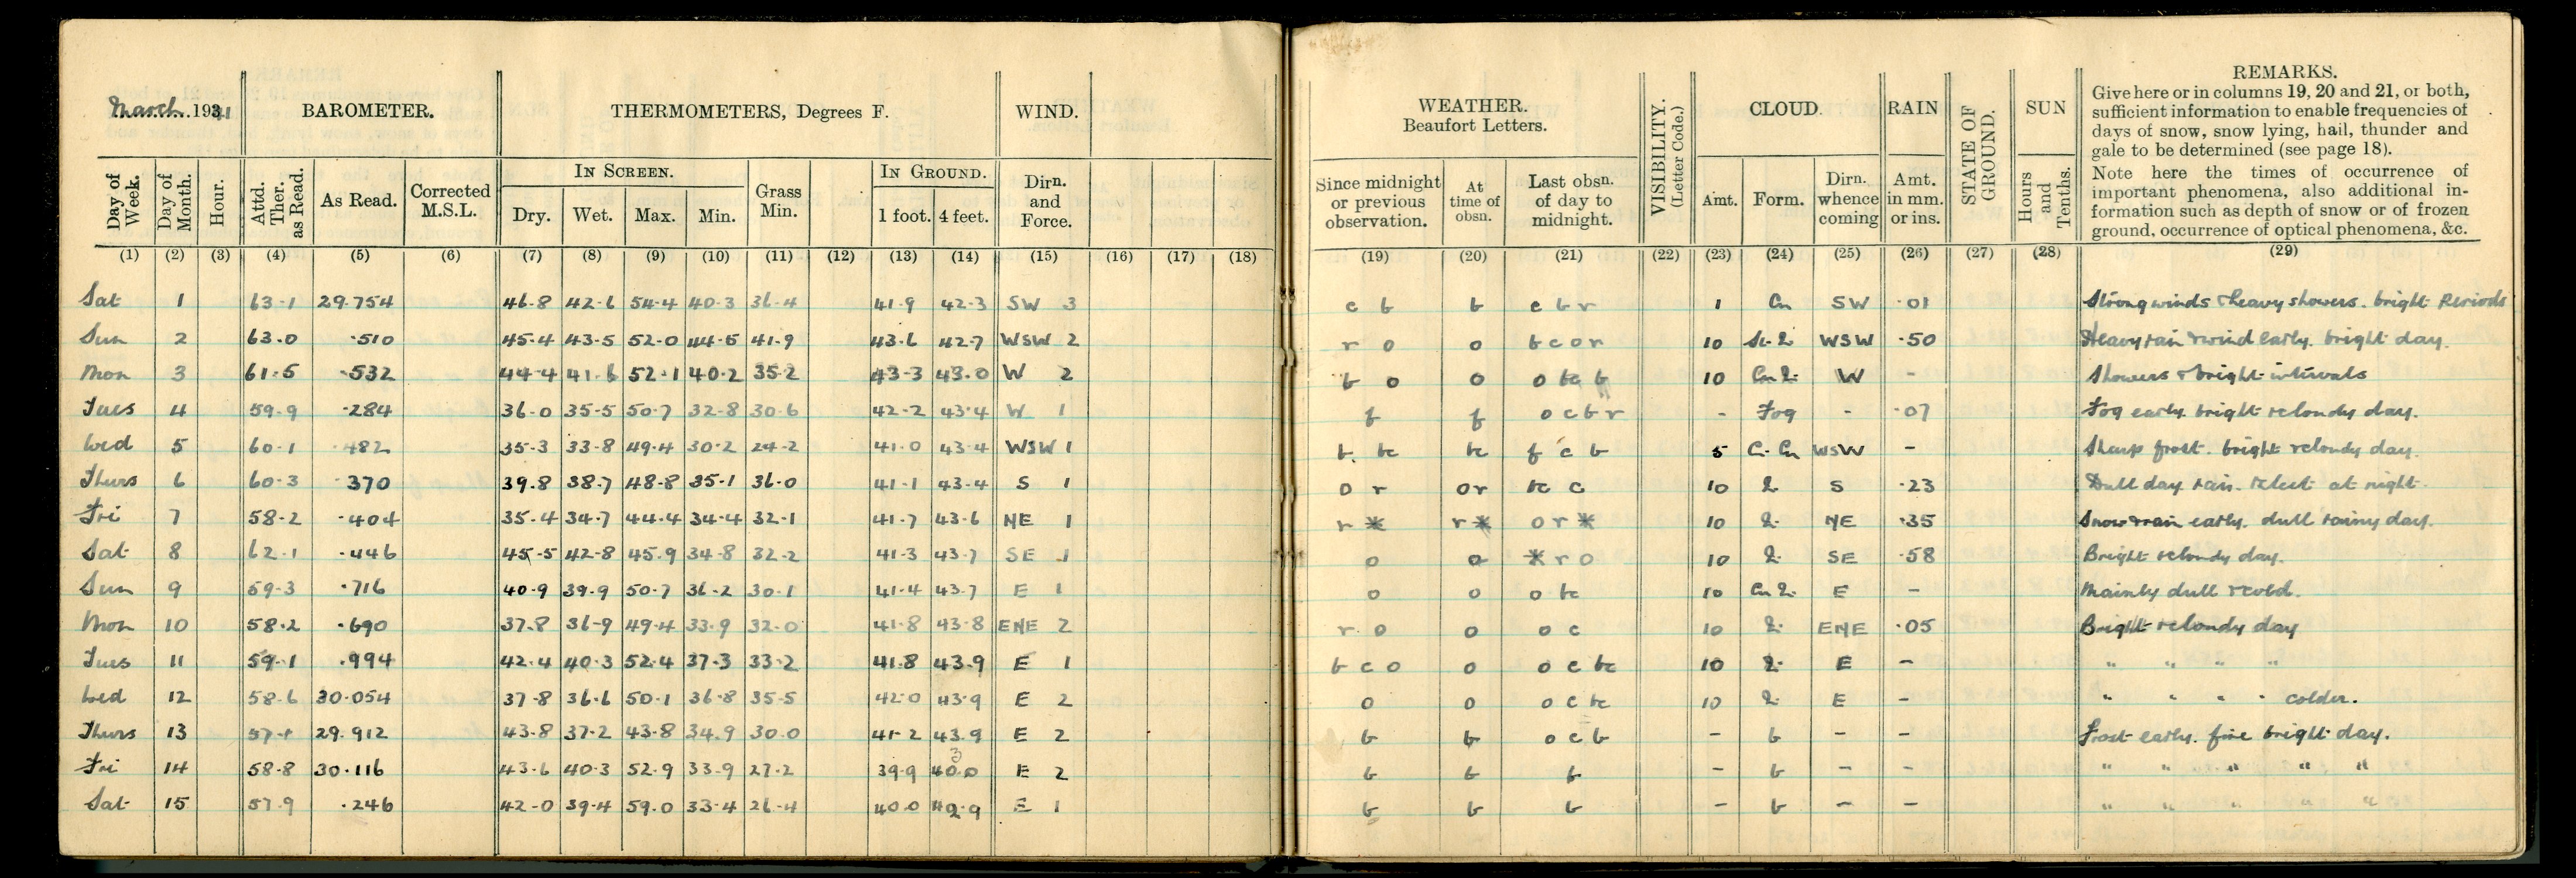 March 1941 BAROMETER. THERMOMETERS, Degrees F. WIND.
Day of Week. Day of Month. Hour. Attd. Ther. as Read. As Read. Corrected M.S.L. IN SCREEN. Dry. Wet. Max. Min. Grass Min. IN GROUND. 1 foot. 4 feet. Dirn. and Force.
(1) (2) (3) (4) (5) (6) (7) (8) (9) (10) (11) (12) (13) (14) (15) (16) (17) (18)
Sat 1 63.1 29.754 46.8 42.6 54.4 40.3 36.4 41.9 42.3 SW 3
Sun 2 63.0 .510 45.4 43.5 52.0 44.5 41.9 43.6 42.7 WSW 2
Mon 3 61.5 .532 44.4 41.6 52.1 40.2 35.2 43.3 43.0 W 2
Tues 4 59.9 .284 36.0 35.5 50.7 32.8 30.6 42.2 43.4 W 1
Wed 5 60.1 .482 35.3 33.8 49.4 30.2 24.2 41.0 43.4 WSW 1
Thurs 6 60.3 .370 39.8 38.7 48.8 35.1 36.0 41.1 43.4 S 1
Fri 7 58.2 .404 35.4 34.7 44.4 34.4 32.1 41.7 43.6 NE 1
Sat 8 62.1 .446 45.5 42.8 45.9 34.8 32.2 41.3 43.7 SE 1
Sun 9 59.3 .716 40.9 39.9 50.7 36.2 30.1 41.4 43.7 E 1
Mon 10 58.2 .690 37.8 36.9 49.4 33.9 32.0 41.8 43.8 ENE 2
Tues 11 59.1 .994 42.4 40.3 52.4 37.3 33.2 41.8 43.9 E 1
Wed 12 58.6 30.054 37.8 36.6 50.1 36.8 35.5 42.0 43.9 E 2
Thurs 13 57.1 29.912 43.8 37.2 43.8 34.9 30.0 41.2 43.9 E 2
Fri 14 58.8 30.116 43.6 40.3 52.9 33.9 27.2 39.9 E 2
Sat 15 57.9 .246 42.0 39.4 59.0 33.4 26.4 40.0 E 1
WEATHER. Beaufort Letters. VISIBILITY. (Letter Code.) CLOUD. RAIN STATE OF GROUND. SUN REMARKS.
Give here or in columns 19, 20 and 21, or both,
sufficient information to enable frequencies of
days of snow, snow lying, hail, thunder and
gale to be determined (see page 18).
Note here the times of occurrence of
important phenomena, also additional in-
formation such as depth of snow or of frozen
ground, occurrence of optical phenomena, &c.
Since midnight or previous observation. At time of obsn. Last obsn. of day to midnight. Amt. Form. Dirn. whence coming Amt. in mm. or ins. Hours and Tenths.
(19) (20) (21) (22) (23) (24) (25) (26) (27) (28) (29)
c b b c b r 1 Cu SW .01 Strong winds & heavy showers. bright Periods
r o o b c o r 10 WSW .50 Heavy rain & wind early. bright day.
b o o o bc b 10 W - Showers & bright intervals
f f o c b r - Fog - .07 Fog early. bright & cloudy day.
b. bc bc f c b 5 Ci. Cu WSW - Sharp frost. bright & cloudy day.
o r or bc c 10 S .23 Dull day rain. & sleet at night.
r * r * o r * 10 NE .35 Snow & rain early. dull rainy day.
o o * r o 10 SE .58 Bright & cloudy day.
o o o bc 10 E - Mainly dull & cold.
r o o o c 10 ENE .05 Bright & cloudy day
b c o o o c bc 10 E - " " " "
o o o c bc 10 E - " " " " colder.
b b o c b - b - - Frost early. fine bright day.
b b b - b - - " " " " "
b b b - b - - " " " " "